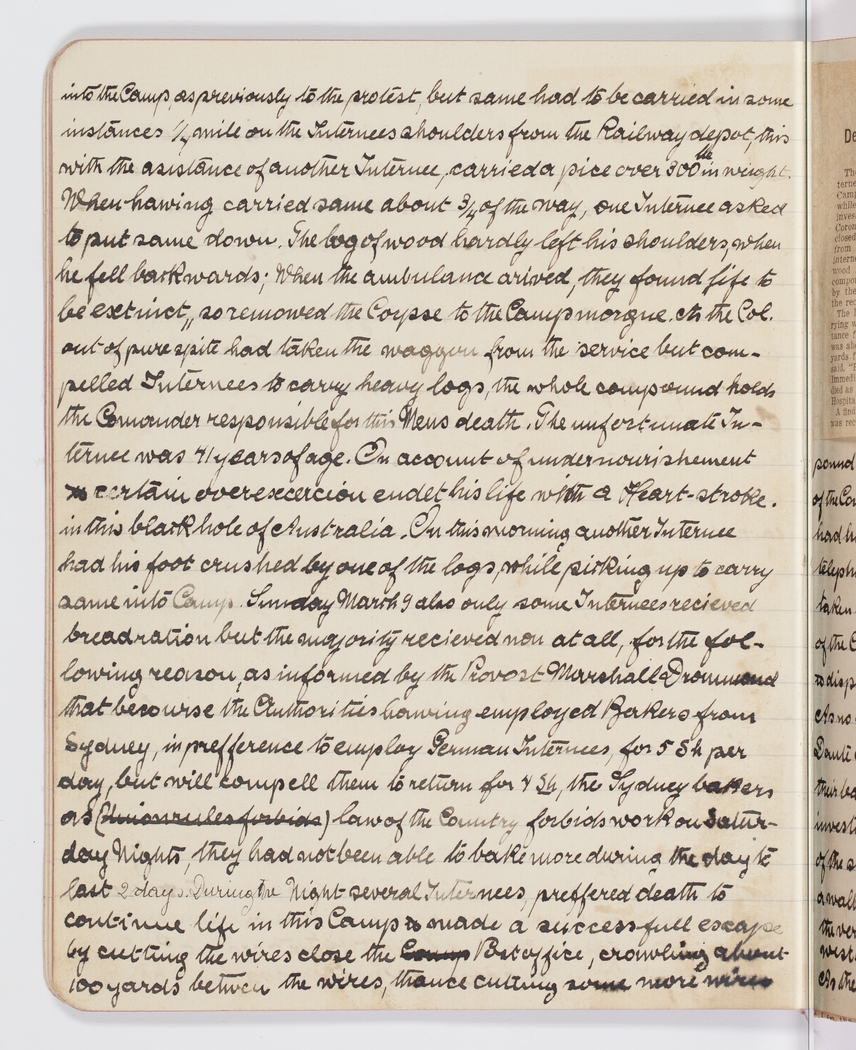 into the Camp, as previously to the protest, but same had to be carried in some
instances ¼ mile on the Internees shoulders from the Railway depot, this
with the asistance of another Internee, carried a pice over 300 in weight.
When hawing carried same about ¾ of the way, one Internee asked
to put same down. The log of wood hardly left his shoulders, when
he fell backwards; When the ambulance arived, they found life to
be exstinct, so remowed the Corpse to the Camp morgue. As the Col.
out of pure spite had taken the waggon from the service but com-
pelled Internees to carry heavy logs, the whole compound holds
the Comander responsible for this Mens death. The unfortunate In-
ternee was 41 years of age. On account of undernourishement
certain overexcercion endet his life with a Heart-stroke.
in this black hole of Australia. On this morning another Internee
had his foot crushed by one of the logs, while picking up to carry
same into Camp. Sunday March 9 also only some Internees recieved
breadration but the majority recieved non at all, for the fol-
lowing reason, as informed by the Provost Marshall Drommond
that becourse the Authorities hawing employed Bakers from
Sydney, in prefference to employ German Internees, for 5 Sh per
day, but will compell them to return for 4 Sh, the Sydney bakers
as (Union rules forbids) law of the Country forbids work on Satur-
day Nights, they had not been able to bake more during the day to
last 2 days. During the Night several Internees, preffered death to
continue life in this Camp made a successfull escape
by cutting the wires close the Camp Postoffice, crowling about
100 yards between the wires, thance cutting some more wires
sound
of the Ca
had h
teleph
taken
of the C
to disp
As no
their ba
invest
of the s
a wall
the ver
west
As the
De
The
terne
Camp
while
inves
Coron
closed
from
intern
wood
compo
by the
the re
The
rying w
tance
was ab
yards
said, "
Immedi
died as
Hospita
A find
was rec